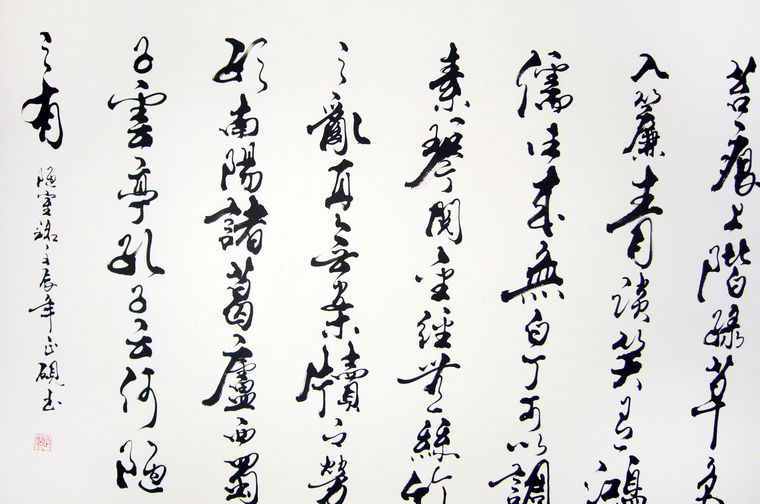 苔痕上階綠草色
入簾青談笑有鴻
儒往來無白丁可以調
素琴閱金經無絲竹
之亂耳無案牘之勞
形南陽諸葛廬西蜀
子雲亭孔子云何陋
之有
陋室銘壬辰年正硯書